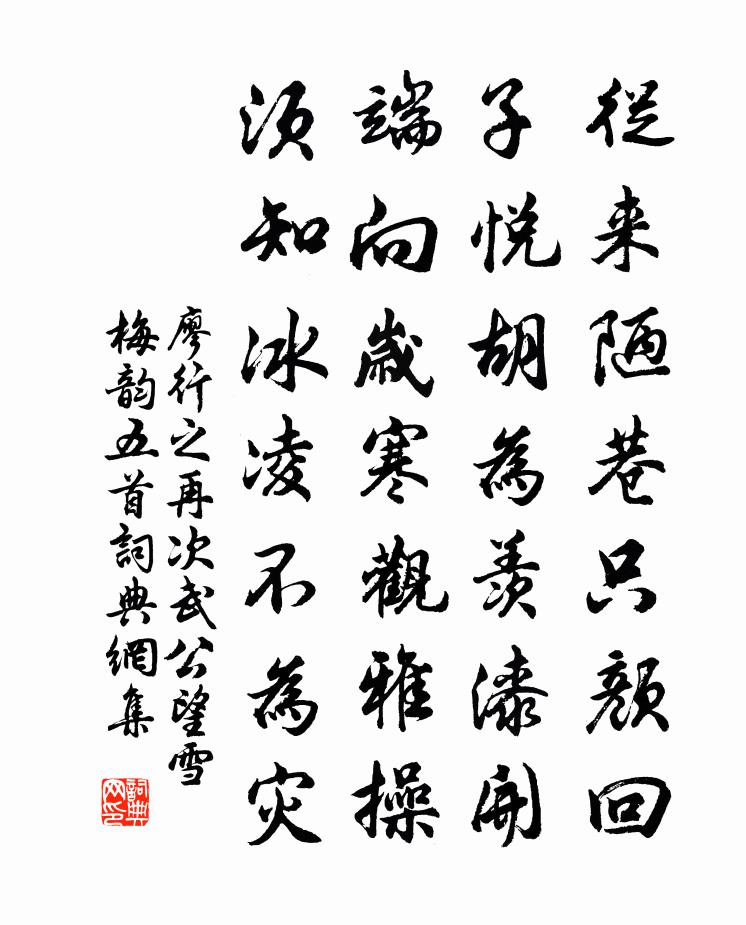 從来陋巷只顏回
子悅胡為羨漆開
端向歲寒觀雅操
須知冰凌不為災
廖行之再次武公望雪
梅韵五首詞典網集
詞典
网印